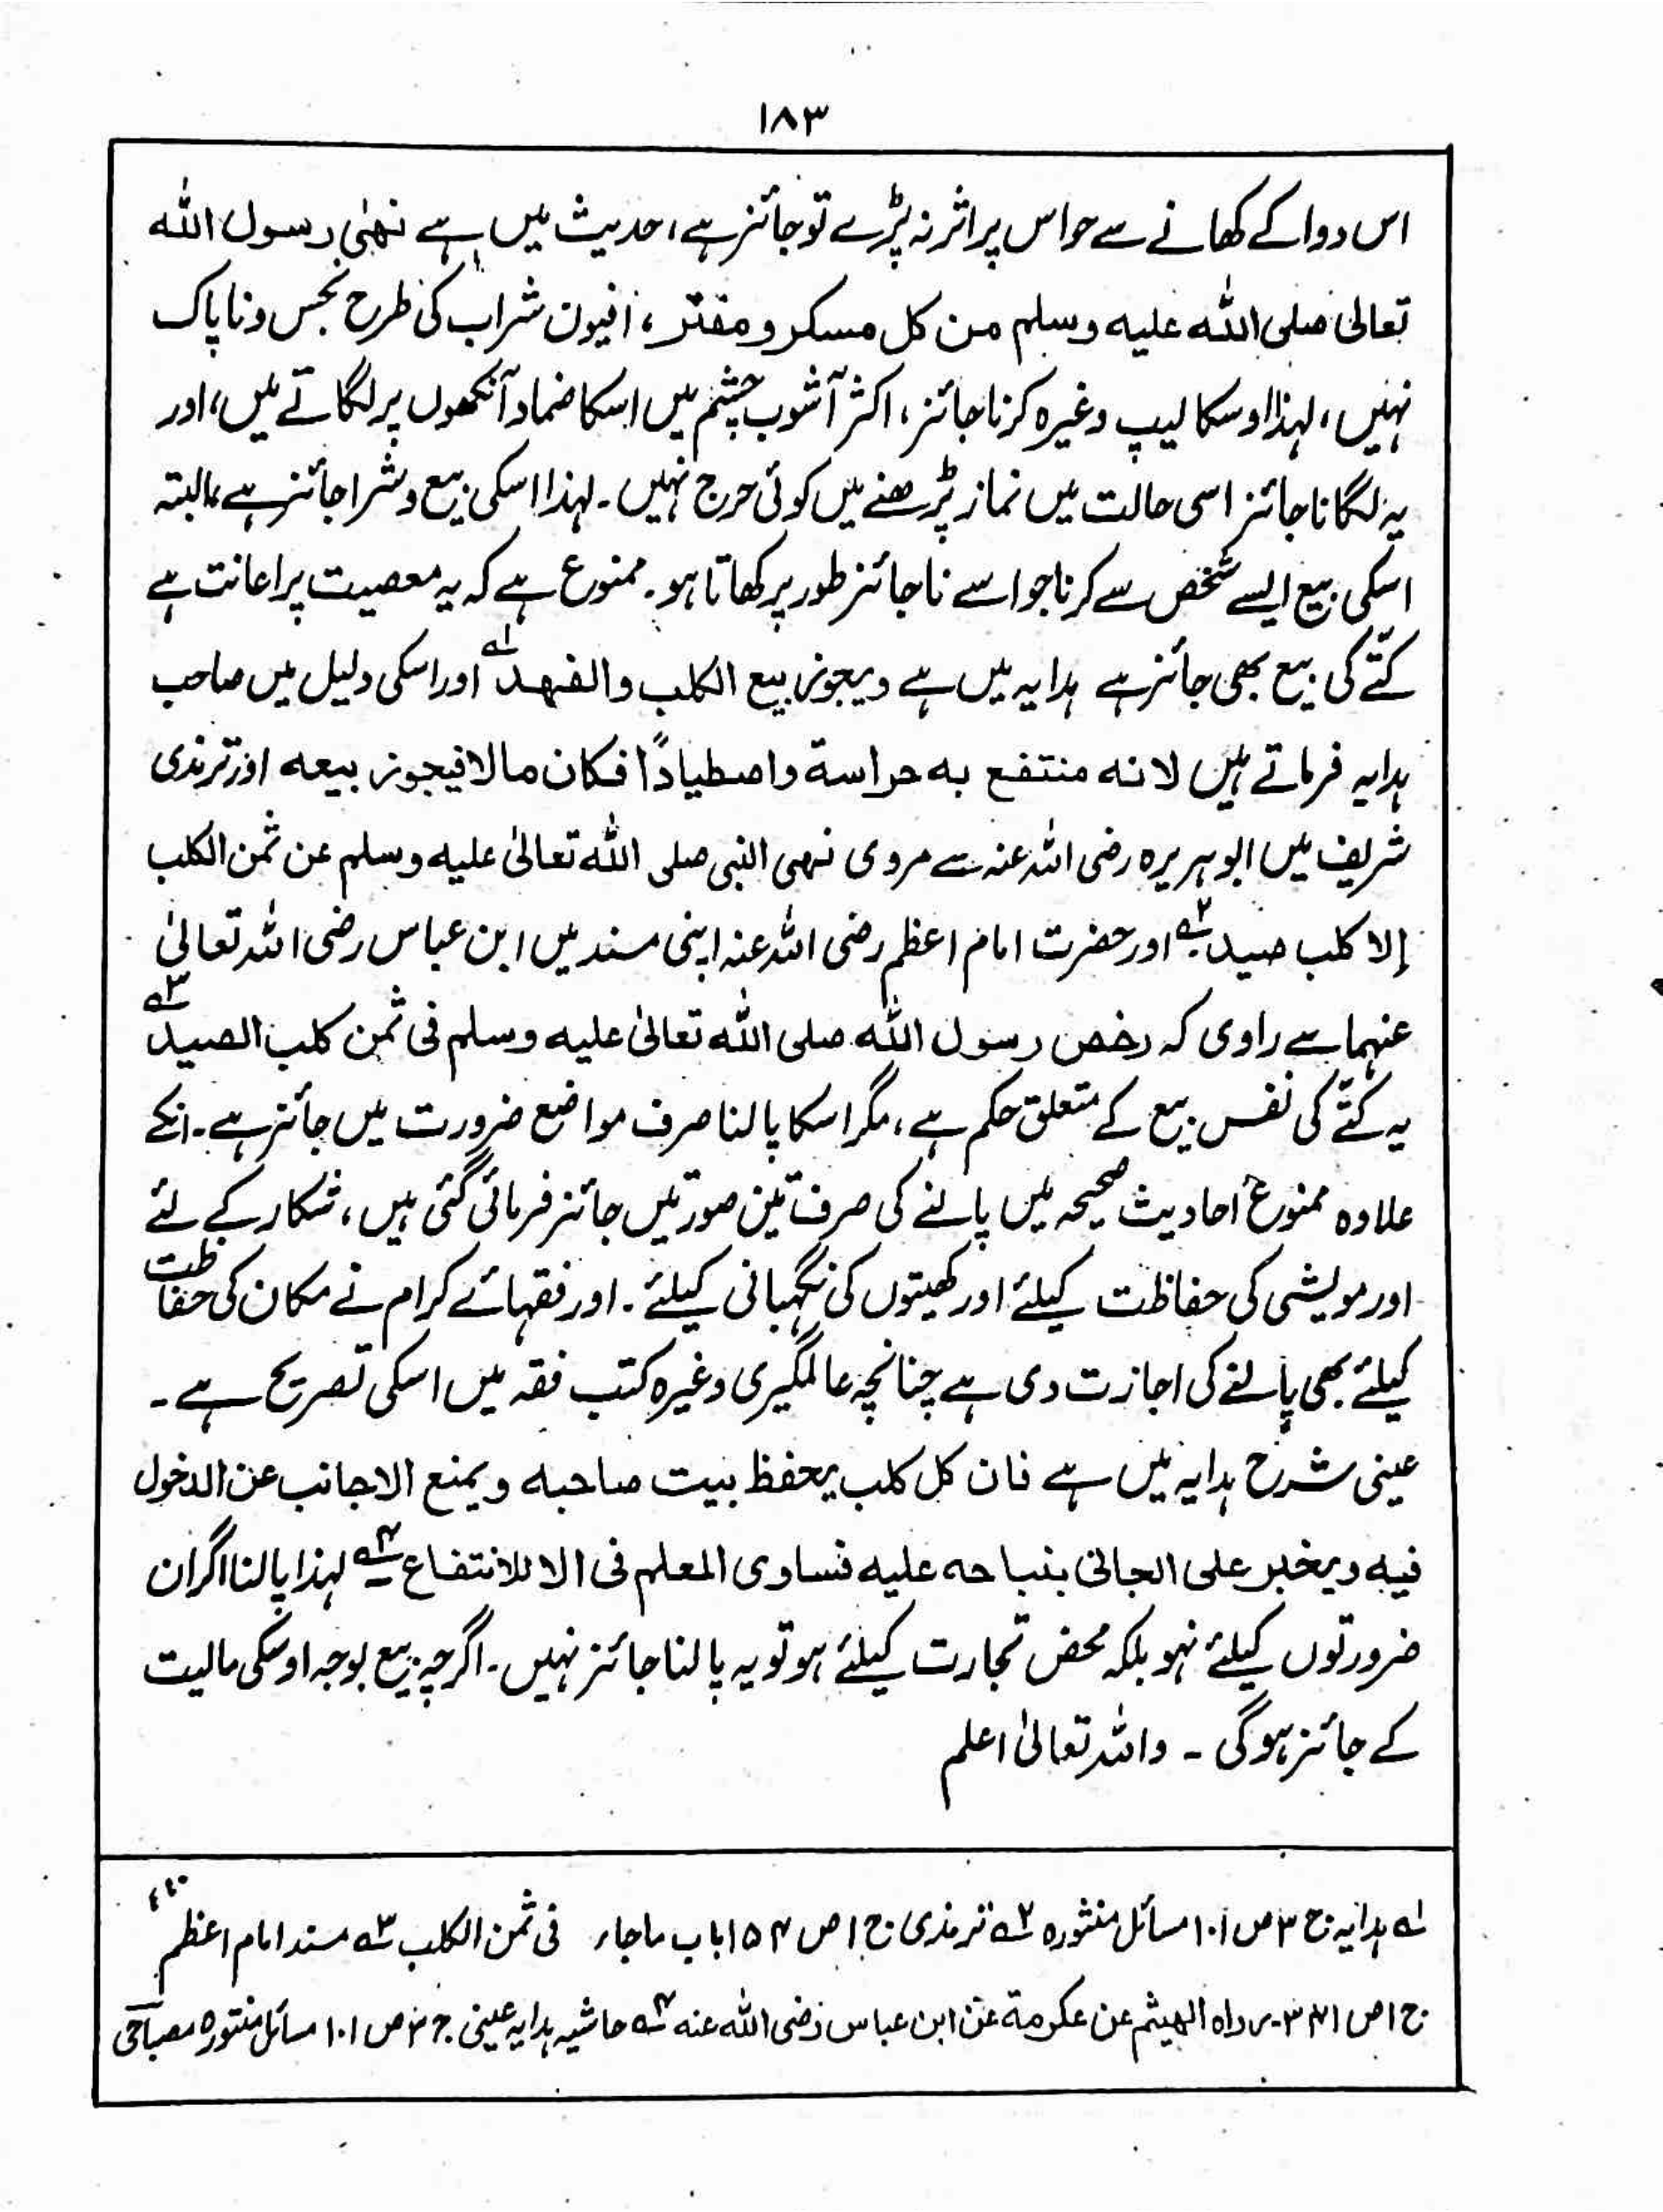 ۱۸۳
اس دوا کے کھانے سے حواس پر اثر نہ پڑے تو جائز ہے، حدیث میں ہے نھیٰ رسول اللہ
تعالیٰ صلی اللہ علیہ وسلم من کل مسکر و مفتر، افیون شراب کی طرح نجس و ناپاک
نہیں، لہذا اوسکا لیپ وغیرہ کرنا جائز، اکثر آشوب چشم میں اسکا ضماد آنکھوں پر لگاتے ہیں، اور
یہ لگانا جائز اسی حالت میں نماز پڑھنے میں کوئی حرج نہیں۔ لہذا اسکی بیع و شرا جائز ہے، البتہ
اسکی بیع ایسے شخص سے کرنا جو اسے ناجائز طور پر کھاتا ہو۔ ممنوع ہے کہ یہ معصیت پر اعانت ہے
کتّے کی بیع بھی جائز ہے ہدایہ میں ہے ویجوز بیع الکلب والفھد ؎۱ اور اسکی دلیل میں صاحب
ہدایہ فرماتے ہیں لانہ منتفع بہ حراسۃ واصطیاداً فکان مالا فیجوز بیعہ اور ترمذی
شریف میں ابوہریرہ رضی اللہ عنہ سے مروی نھی النبی صلی اللہ تعالیٰ علیہ وسلم عن ثمن الکلب
إلا کلب صید ؎۲ اور حضرت امام اعظم رضی اللہ عنہ اپنی مسند میں ابن عباس رضی اللہ تعالیٰ
عنہما سے راوی کہ رخص رسول اللہ صلی اللہ تعالیٰ علیہ وسلم فی ثمن کلب الصید ؎۳
یہ کتّے کی نفس بیع کے متعلق حکم ہے، مگر اسکا پالنا صرف مواضع ضرورت میں جائز ہے۔ انکے
علاوہ ممنوع احادیث صحیحہ میں پالنے کی صرف تین صورتیں جائز فرمائی گئی ہیں، شکار کے لئے
اور مویشی کی حفاظت کیلئے اور کھیتوں کی نگہبانی کیلئے۔ اور فقہائے کرام نے مکان کی حفاظت
کیلئے بھی پالنے کی اجازت دی ہے چنانچہ عالمگیری وغیرہ کتب فقہ میں اسکی تصریح ہے۔
عینی شرح ہدایہ میں ہے فان کل کلب یحفظ بیت صاحبہ ویمنع الاجانب عن الدخول
فیہ ویخبر علی الجانی بنباحہ علیہ فساوی المعلم فی الا للانتفاع ؎۴ لہذا پالنا اگر ان
ضرورتوں کیلئے نہو بلکہ محض تجارت کیلئے ہو تو یہ پالنا جائز نہیں۔ اگرچہ بیع بوجہ اوسکی مالیت
کے جائز ہوگی ۔ واللہ تعالیٰ اعلم
؎۱ ہدایہ ج ۳ ص ۱۰۱ مسائل منثورہ ؎۲ ترمذی ج ۱ ص ۱۵۴ باب ماجاء فی ثمن الکلب ؎۳ مسند امام اعظم
ج ۱ ص ۳۴۱ ۔ رواہ الھیثم عن عکرمۃ عن ابن عباس رضی اللہ عنہ ؎۴ حاشیہ ہدایہ عینی ج ۳ ص ۱۰۱ مسائل منثورہ مصباحی